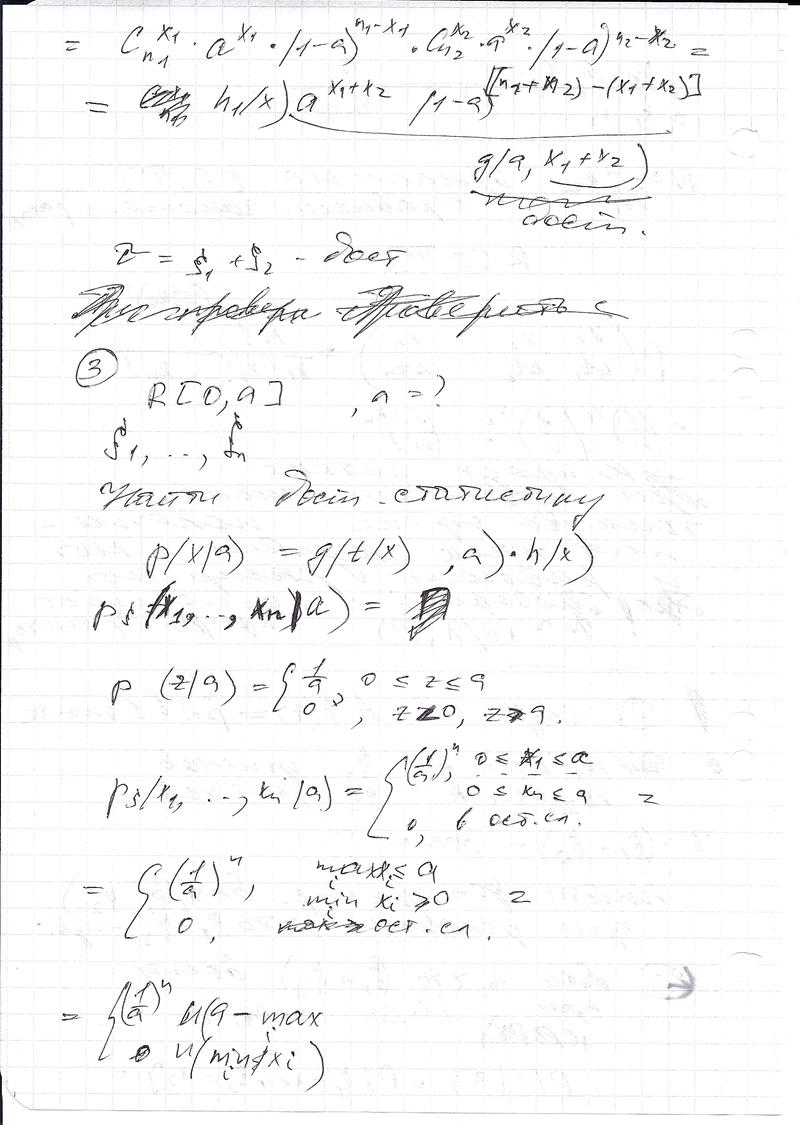 = C_{n_1}^{x_1} · a^{x_1} · (1-a)^{n_1-x_1} · C_{n_2}^{x_2} · a^{x_2} · (1-a)^{n_2-x_2} =
= h_1(x) a^{x_1+x_2} (1-a)^{[(n_1+n_2)-(x_1+x_2)]}
g(a, x_1+x_2)
дост.
τ = ξ_1 + ξ_2 - дост
③
R[0,a] , a = ?
ξ_1, .., ξ_n
Найти дост. статистику
p(x|a) = g(t(x), a) · h(x)
p_ξ(x_1, .., x_n|a) =
p (z|a) = { 1/a, 0 ≤ z ≤ a
0, z<0, z>a.
p_ξ(x_1, .., x_n|a) = { (1/a)^n, 0 ≤ x_1 ≤ a
0 ≤ x_n ≤ a =
0, в ост. сл.
= { (1/a)^n, max x_i ≤ a
min x_i ≥ 0 =
0, ост. сл.
= { (1/a)^n u(a - max
0 u(min x_i)